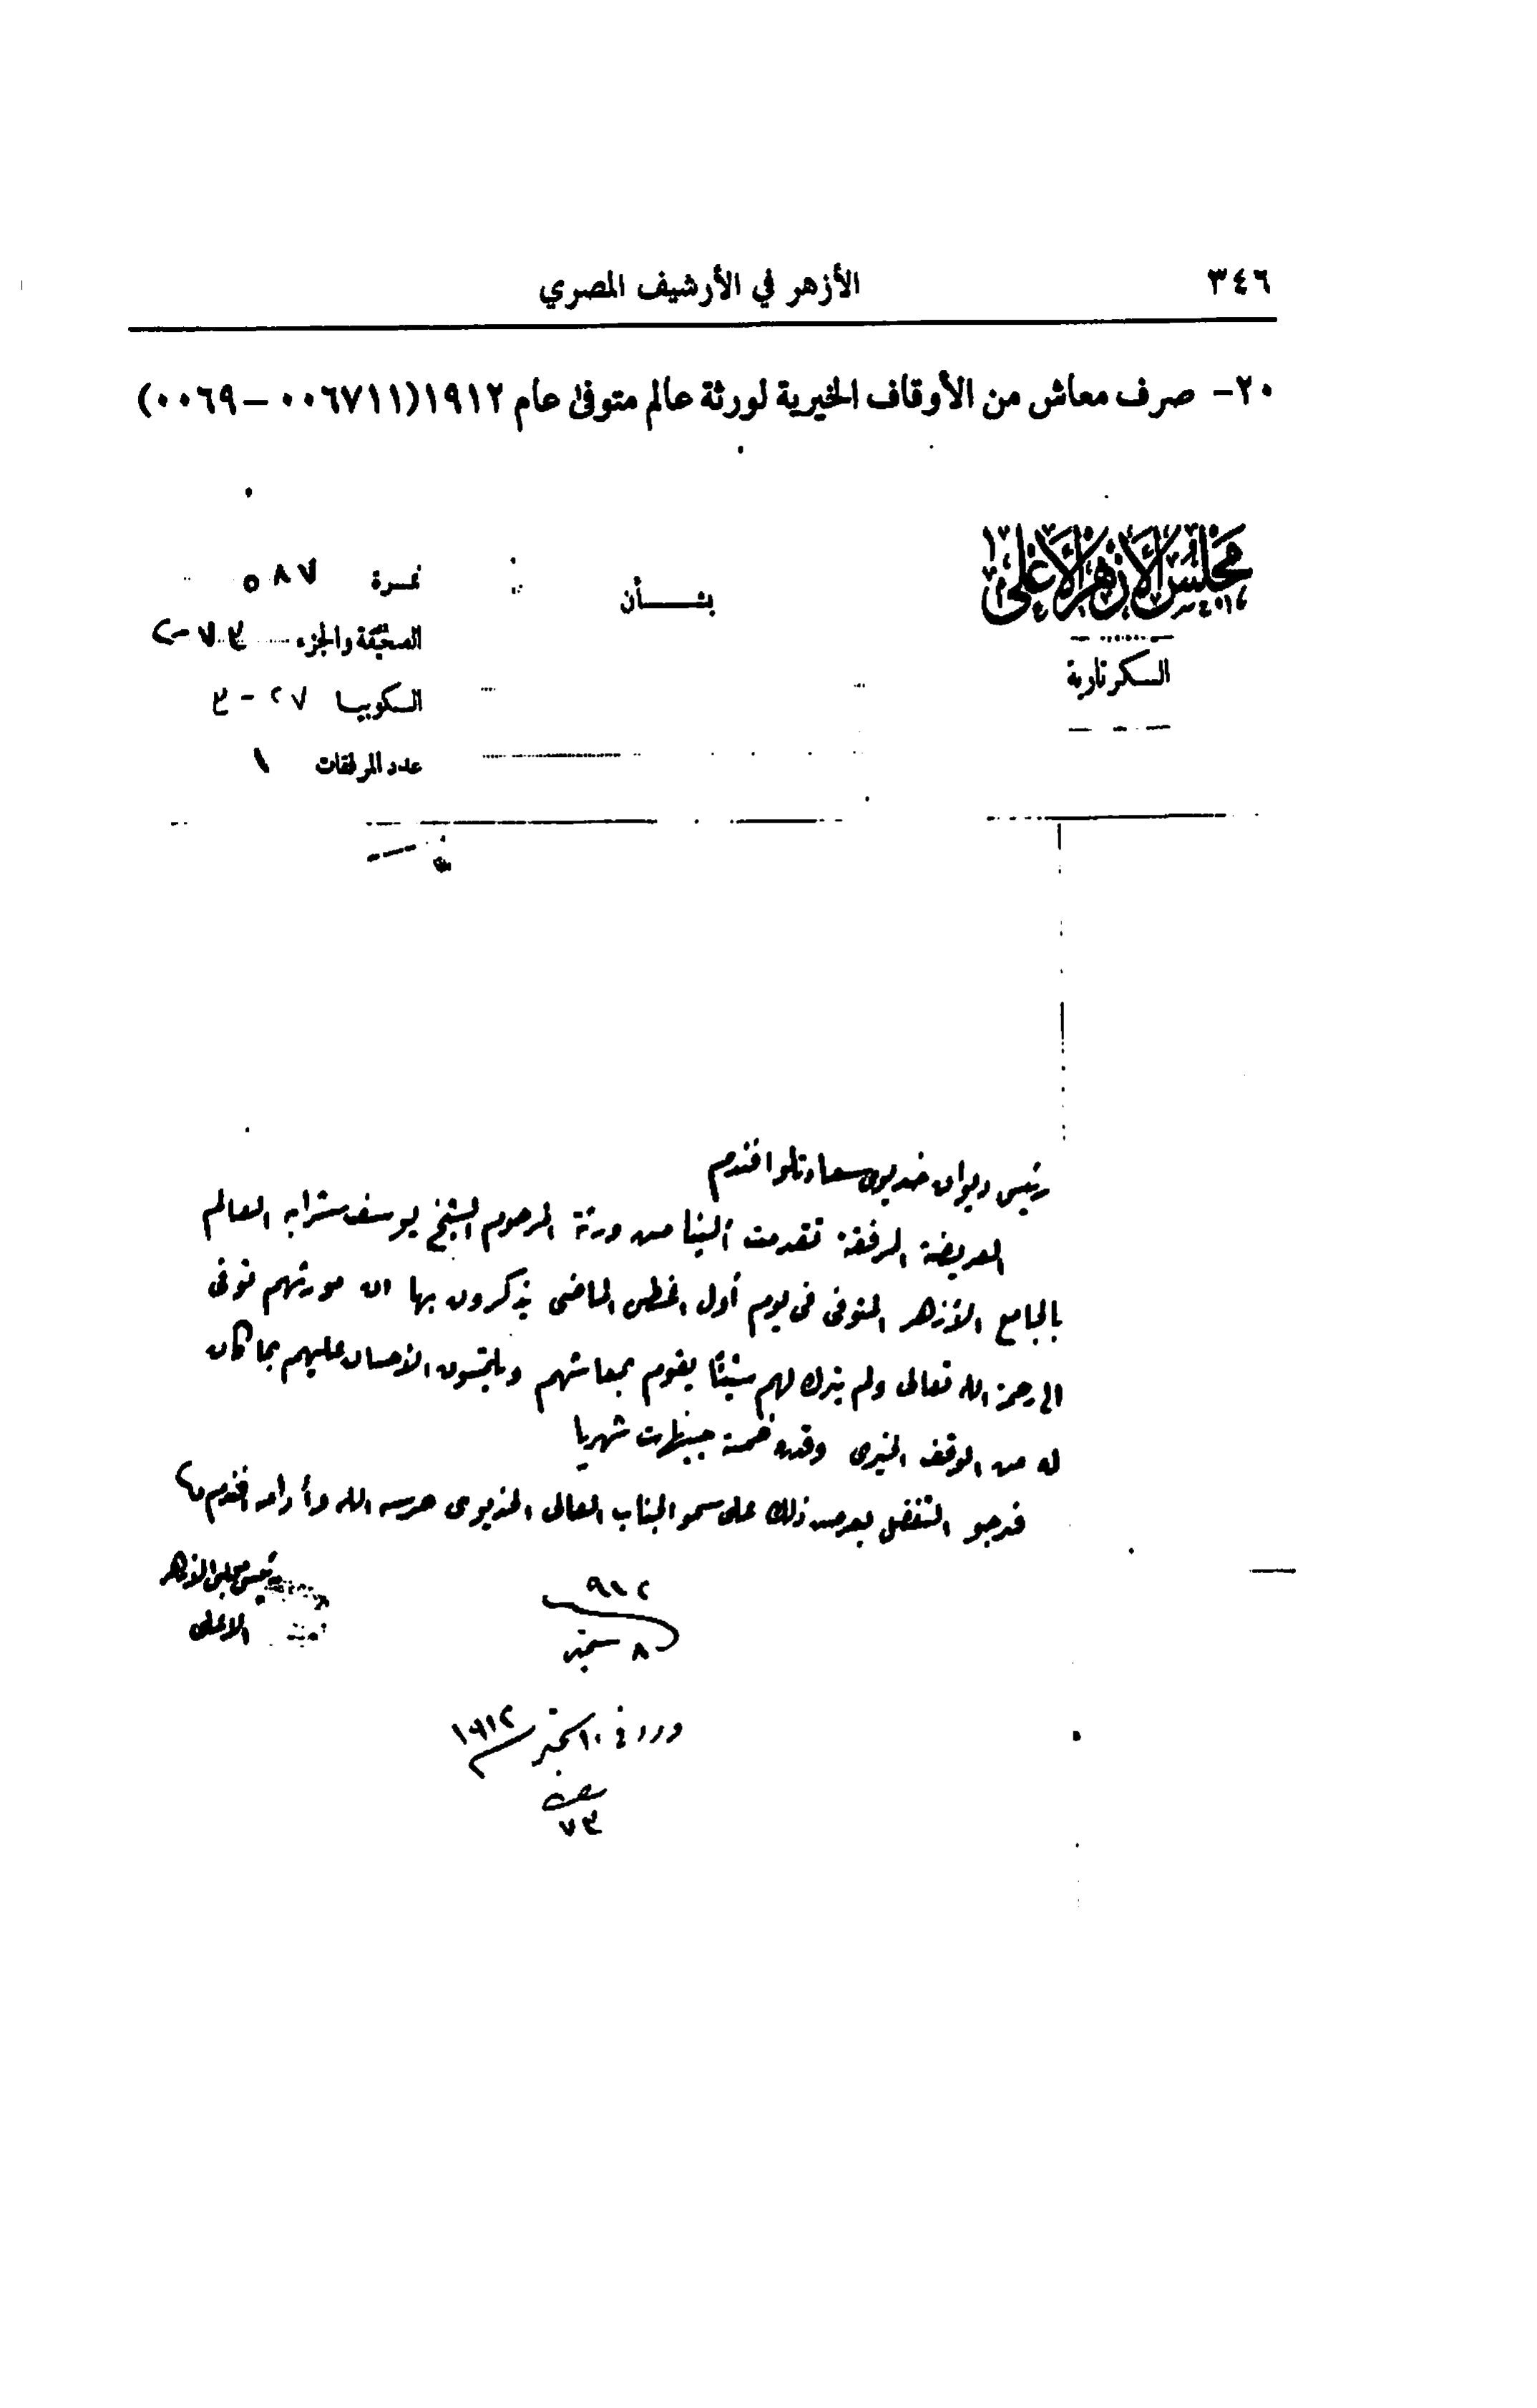 ٣٤٦
الأزهر في الأرشيف المصري
٢٠- صرف معاش من الأوقاف الخيرية لورثة عالم متوفى عام ١٩١٢(٠٠٦٧١١ – ٠٠٦٩)
مجلس الأزهر الأعلى
السكرتارية
بشأن
نمرة ٥٨٧
الصحيفة والجزء ٧٣-٢
السكوبيا ٢٧-٣
عدد المرفقات ١
رئيس ديوان خديوى سعادتلو افندم
العريضة المرفقة تقدمت إلينا من ورثة المرحوم الشيخ يوسف شرابه العالم
بالجامع الأزهر المتوفى فى يوم أول اغسطس الماضى يذكرون بها ان مورثهم توفى
الى رحمة الله تعالى ولم يترك لهم شيئا يقوم بمعاشهم ويلتمسون الأحسان عليهم بما كان
له من الوقف الخيرى وقدره خمسة جنيهات شهريا
فنرجو التفضل بعرض ذلك على سمو الجناب العالى الخديوى حرسه الله وأدامه افندم
رئيس مجلس الازهر
الاعلى
٩١٢
٨ سبتمبر
ورد فى ١٠ سبتمبر ١٩١٢
٧٣